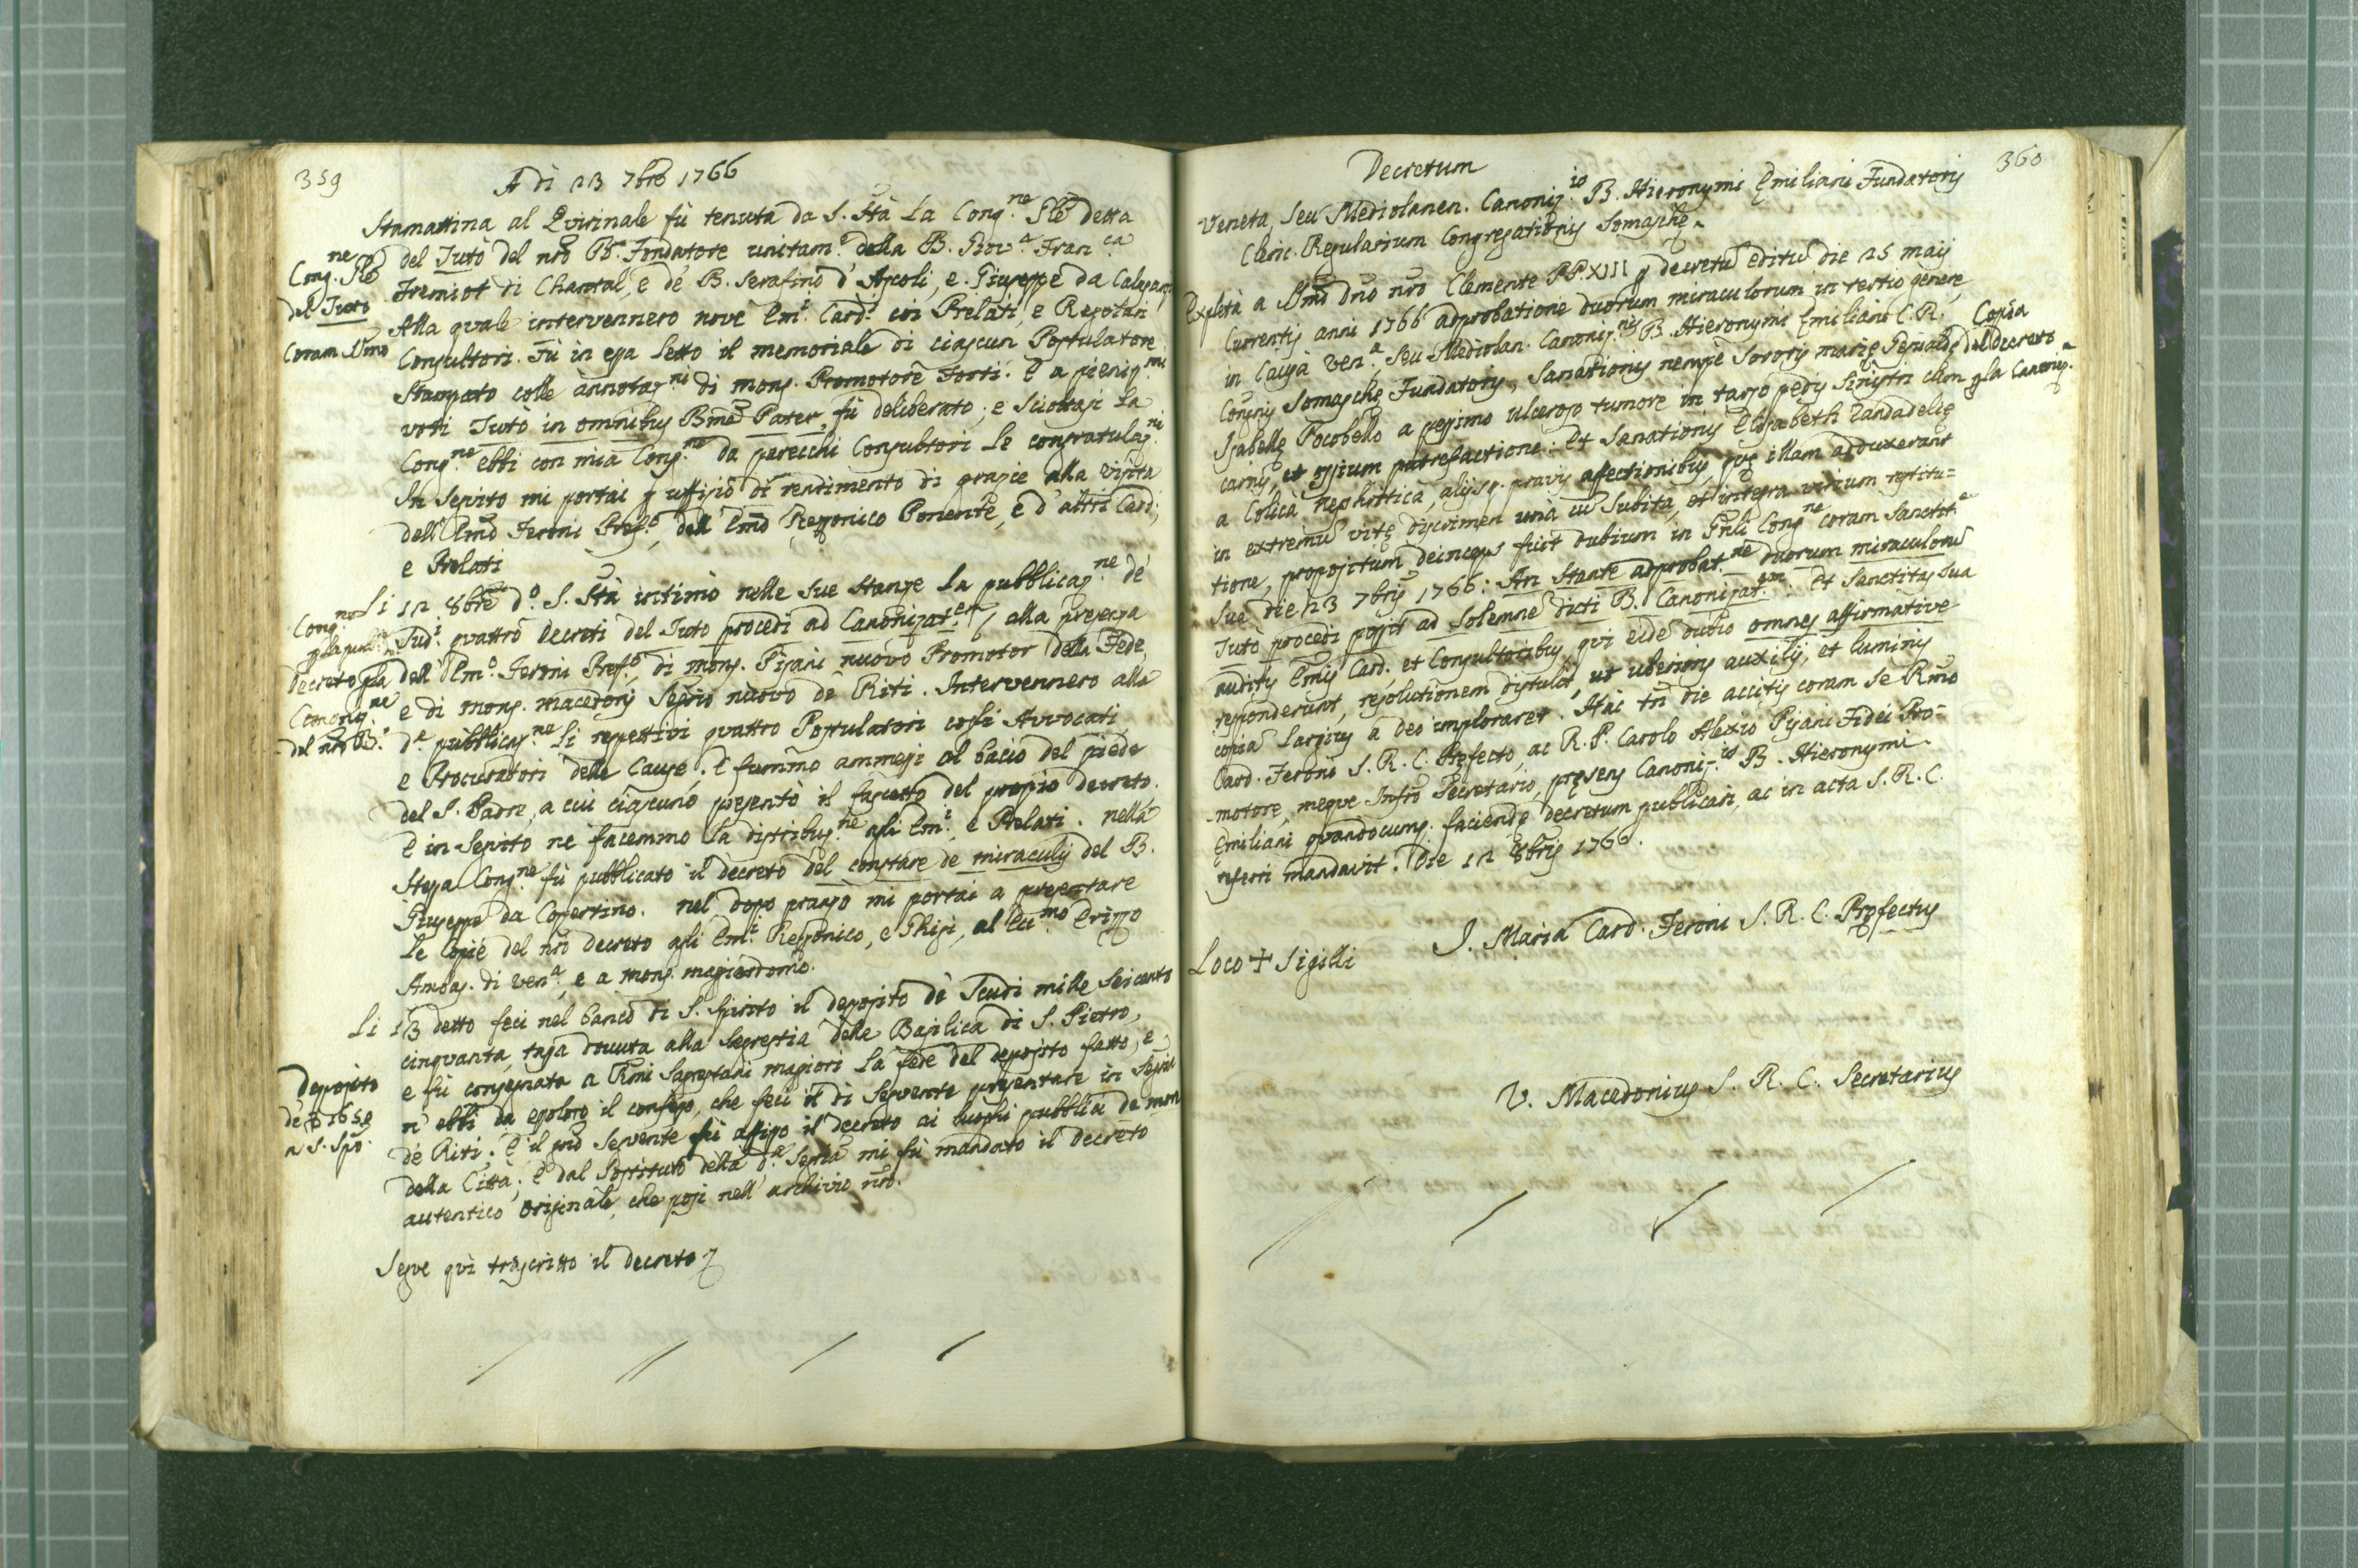 359
A dì 23 7bre 1766
Stamattina al Quirinale fù tenuta da S. Stà la Cong.ne Gle detta
del Tutò del nrõ B. Fondatore unitam.e della B. Giov.a Fran.ca
Fremiot di Chantal, e de' B. Serafino d'Ascoli, e Giuseppe da Calasanz
Cong.ne Gle
del Tuto
coram SSmo
Alla quale intervennero nove Em.i Card.i coi Prelati, e Regolari
Consultori. Fù in essa letto il memoriale di ciascun Postulatore
stampato colle annotaz.ni di mons. Promotore Forti. E a pienis.mi
voti Tutò in omnibus Bme Pater, fù deliberato; e scioltasi la
Cong.ne ebbi con mia Cons.ne da parecchi Consultori le congratulaz.ni
In seguito mi portai p uffizio di rendimento di grazie alla visita
dell'Emo Feroni Pref.o, dell'Emo Rezzonico Ponente, e d'altri Card.i,
e Prelati
Li 12 8bre d.o S. Stà intimò nelle sue stanze la pubblicaz.ne de'
Sud.i quattro decreti del Tuto procedi ad Canonizat.em, alla presenza
dell'Em.o Feroni Pref.o, di mons. Pisani nuovo Promotor della Fede,
e di mons. Macedonj Segrio nuovo de' Riti. Intervennero alla
Cong.ne
p la pub.ne
decreto p la
Canoniz.ne
del nrõ B.
d.a pubblicaz.ne li respettivi quattro Postulatori cogli Avvocati
e Procuratori delle Cause. E fummo ammessi al bacio del piede
del S. Padre, a cui ciascuno presentò il fascetto del propio decreto.
E in seguito ne facemmo la distribuz.ne agli Em.i, e Prelati. Nella
stessa Cong.ne fù pubblicato il decreto del constare de miraculis del B.
Giuseppe da Copertino. Nel dopo pranzo mi portai a presentare
le copie del nrõ decreto agli Em.i Rezzonico, e Chigi, al Ecc.mo Erizzo
Ambas. di Ven.a, e a mons. magiordomo.
Li 13 detto feci nel banco di S. Spirito il deposito de' Scudi mille seicento
cinquanta, tassa dovuta alla Segrestia della Basilica di S. Pietro,
e fù consegnata a Rmi Sagrestani magiori la fede del deposito fatto, e
n'ebbi da essoloro il confesso, che feci il dì seguente presentare in Segria
de' Riti. E il giõ seguente fù affisso il decreto ai luoghi pubblici de mon
della Città. E dal sostituto della d.a Segria mi fù mandato il decreto
autentico originale, che posi nell'archivio nrõ.
Deposito
de' ∇ 1650
a S. Spõ.
Segue quì trascritto il decreto
360
Decretum
Veneta, seu Mediolanen. Canoniz.is B. Hieronymi Emiliani Fundatoris
Cleric. Regularium Congregationis Somaschę.
Expleta a SSmo Dnõ nrõ Clemente PP. XIII p decretũ editũ die 25 maij
currentis anni 1766 adprobatione duorum miraculorum in tertio genere
in Causa Ven.a, seu Mediolan. Canoniz.nis B. Hieronymi Emiliani C. R.
Congnis Somaschę Fundatoris, Sanationis nempè Sororis Marię Gesualdę
Copia
del decreto
p la Canoniz.
Isabellę Pocobello a pessimo ulceroso tumore in tarso pedis sinistri cum
carnis, et ossium putrefactione: Et Sanationis Elisabeth Zandadelię
a Colica nephritica, alijsq. pravis affectionibus, quę illam adduxerant
in extremũ vitę discrimen unà cũ subita, et integra virium restitu=
tione, propositum deinceps fuit dubium in Gnli Cong.ne coram Sanctit.e
Sua die 23 7bris 1766: An stante adprobat.ne duorum miraculorũ
Tutò procedi possit ad solemne dicti B. Canonizat.em. Et Sanctitas Sua
auditis Emis Card. et Consultoribus, qui eidẽ dubio omnes affirmative
responderunt, resolutionem distulit, ut uberioris auxilij, et luminis
copia largius a Deo imploraret. Hac tñ die accitis coram se Rmo
Card. Feroni S. R. C. Pręfecto, ac R. P. Carolo Alexio Pisani Fidei Pro=
motore, meque Infrõ Secretario, pręsens Canoniz.is B. Hieronymi
Emiliani quandocumq. faciendę decretum publicari, ac in acta S. R. C.
referri mandavit. Die 12 8bris 1766.
J. Maria Card. Feroni S. R. C. Pręfectus
Loco + Sigilli
V. Macedonius S. R. C. Secretarius